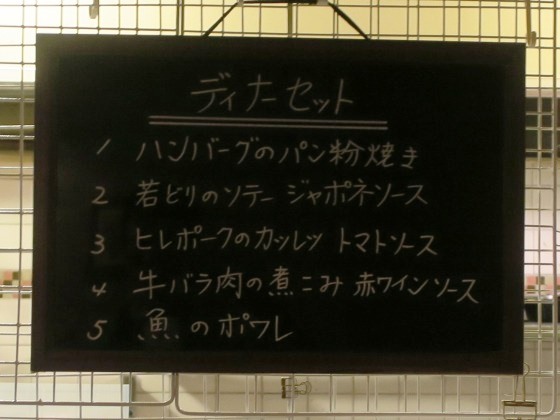 ディナーセット
1 ハンバーグのパン粉焼き
2 若どりのソテー ジャポネソース
3 ヒレポークのカツレツ トマトソース
4 牛バラ肉の煮こみ 赤ワインソース
5 魚のポワレ